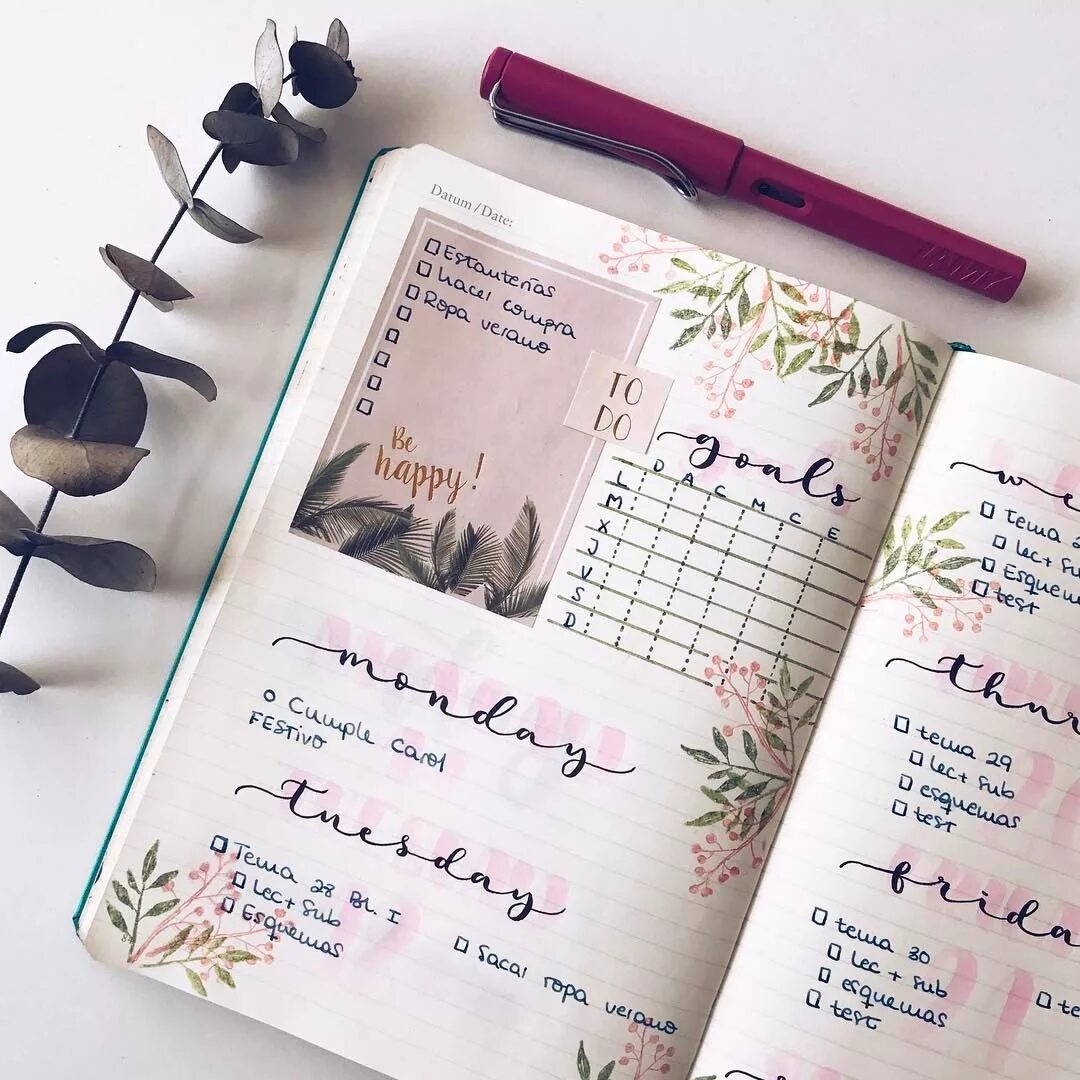 Datum / Date:
Estanterías
hacer compra
Ropa verano
TO
DO
Be
happy!
goals
D A C M C E
L
M
X
J
V
S
D
monday
Cumple Carol
FESTIVO
tuesday
Tema 28 Bl. I
lec + sub
Esquemas
Sacar ropa verano
we
tema 2
lec + su
Esquem
test
thur
tema 29
lec + sub
esquemas
test
frida
tema 30
lec + sub
esquemas
test
te
LAMY